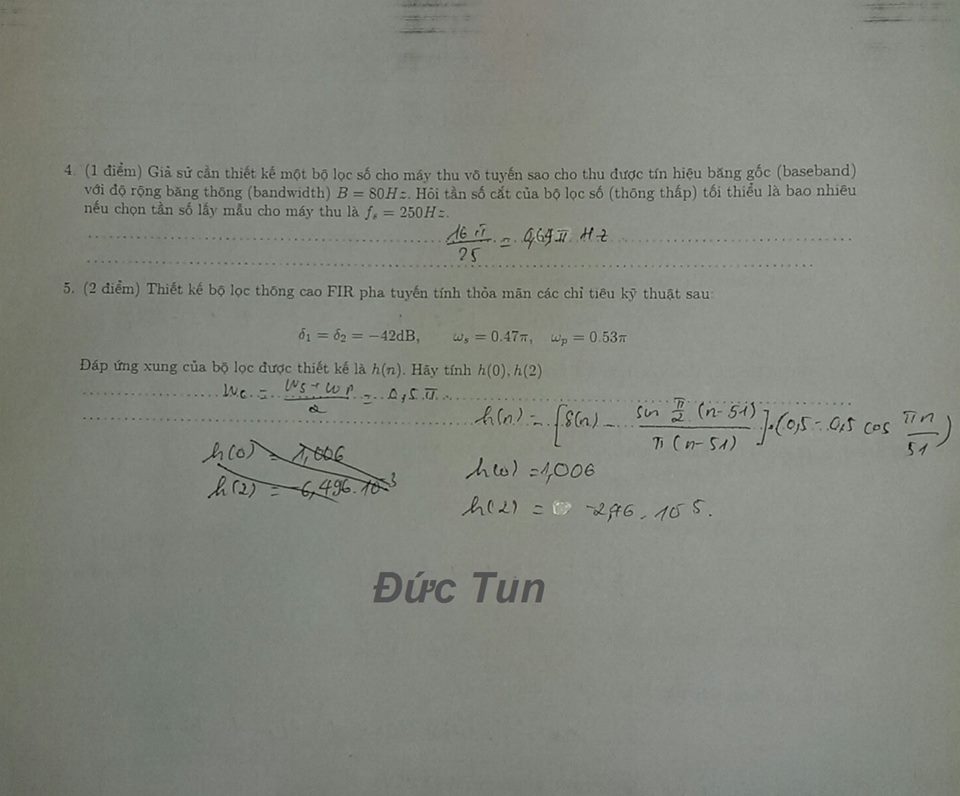 4. (1 điểm) Giả sử cần thiết kế một bộ lọc số cho máy thu vô tuyến sao cho thu được tín hiệu băng gốc (baseband)
với độ rộng băng thông (bandwidth) B = 80Hz. Hỏi tần số cắt của bộ lọc số (thông thấp) tối thiểu là bao nhiêu
nếu chọn tần số lấy mẫu cho máy thu là fₛ = 250Hz.
16π/25 = 0,64π Hz
5. (2 điểm) Thiết kế bộ lọc thông cao FIR pha tuyến tính thỏa mãn các chỉ tiêu kỹ thuật sau:
δ₁ = δ₂ = −42dB, ωₛ = 0.47π, ωₚ = 0.53π
Đáp ứng xung của bộ lọc được thiết kế là h(n). Hãy tính h(0), h(2)
ωc = (ωs + ωp)/2 = 0,5π
h(n) = [δ(n) - sin π/2 (n-51) / π(n-51)].(0,5 - 0,5 cos πn/51)
h(0) = 1,006
h(2) = -6,496.10⁻³
h(0) = 1,006
h(2) = -2,46.10⁻⁵.
Đức Tun